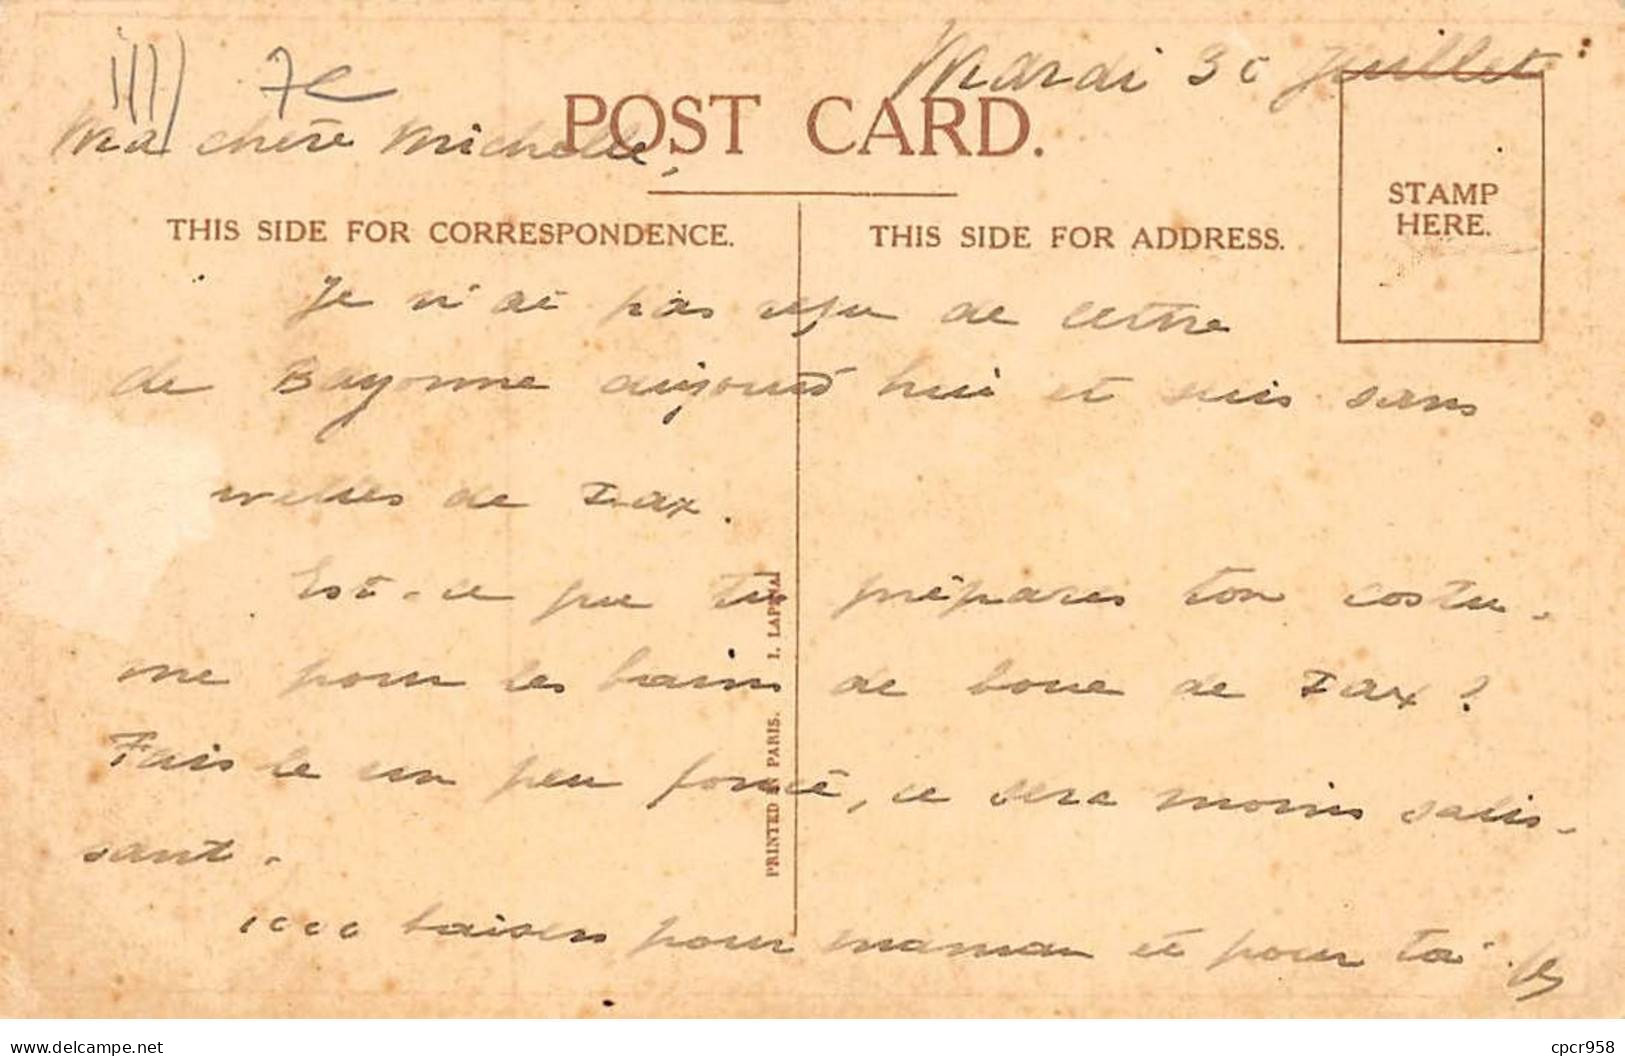 Mardi 30 Juillet
7e
Ma chère Michelle,
POST CARD.
STAMP
HERE.
THIS SIDE FOR CORRESPONDENCE.
THIS SIDE FOR ADDRESS.
Je n'ai pas reçu de lettre
de Bayonne aujourd'hui et suis sans
velles de Dax.
Est-ce que tu prépares ton costu-
me pour les bains de boue de Dax ?
Fais le un peu foncé, ce sera moins salis-
sant.
1000 baisers pour maman et pour toi
PRINTED IN PARIS. I. LAPINA
delcampe.net
cpcr958